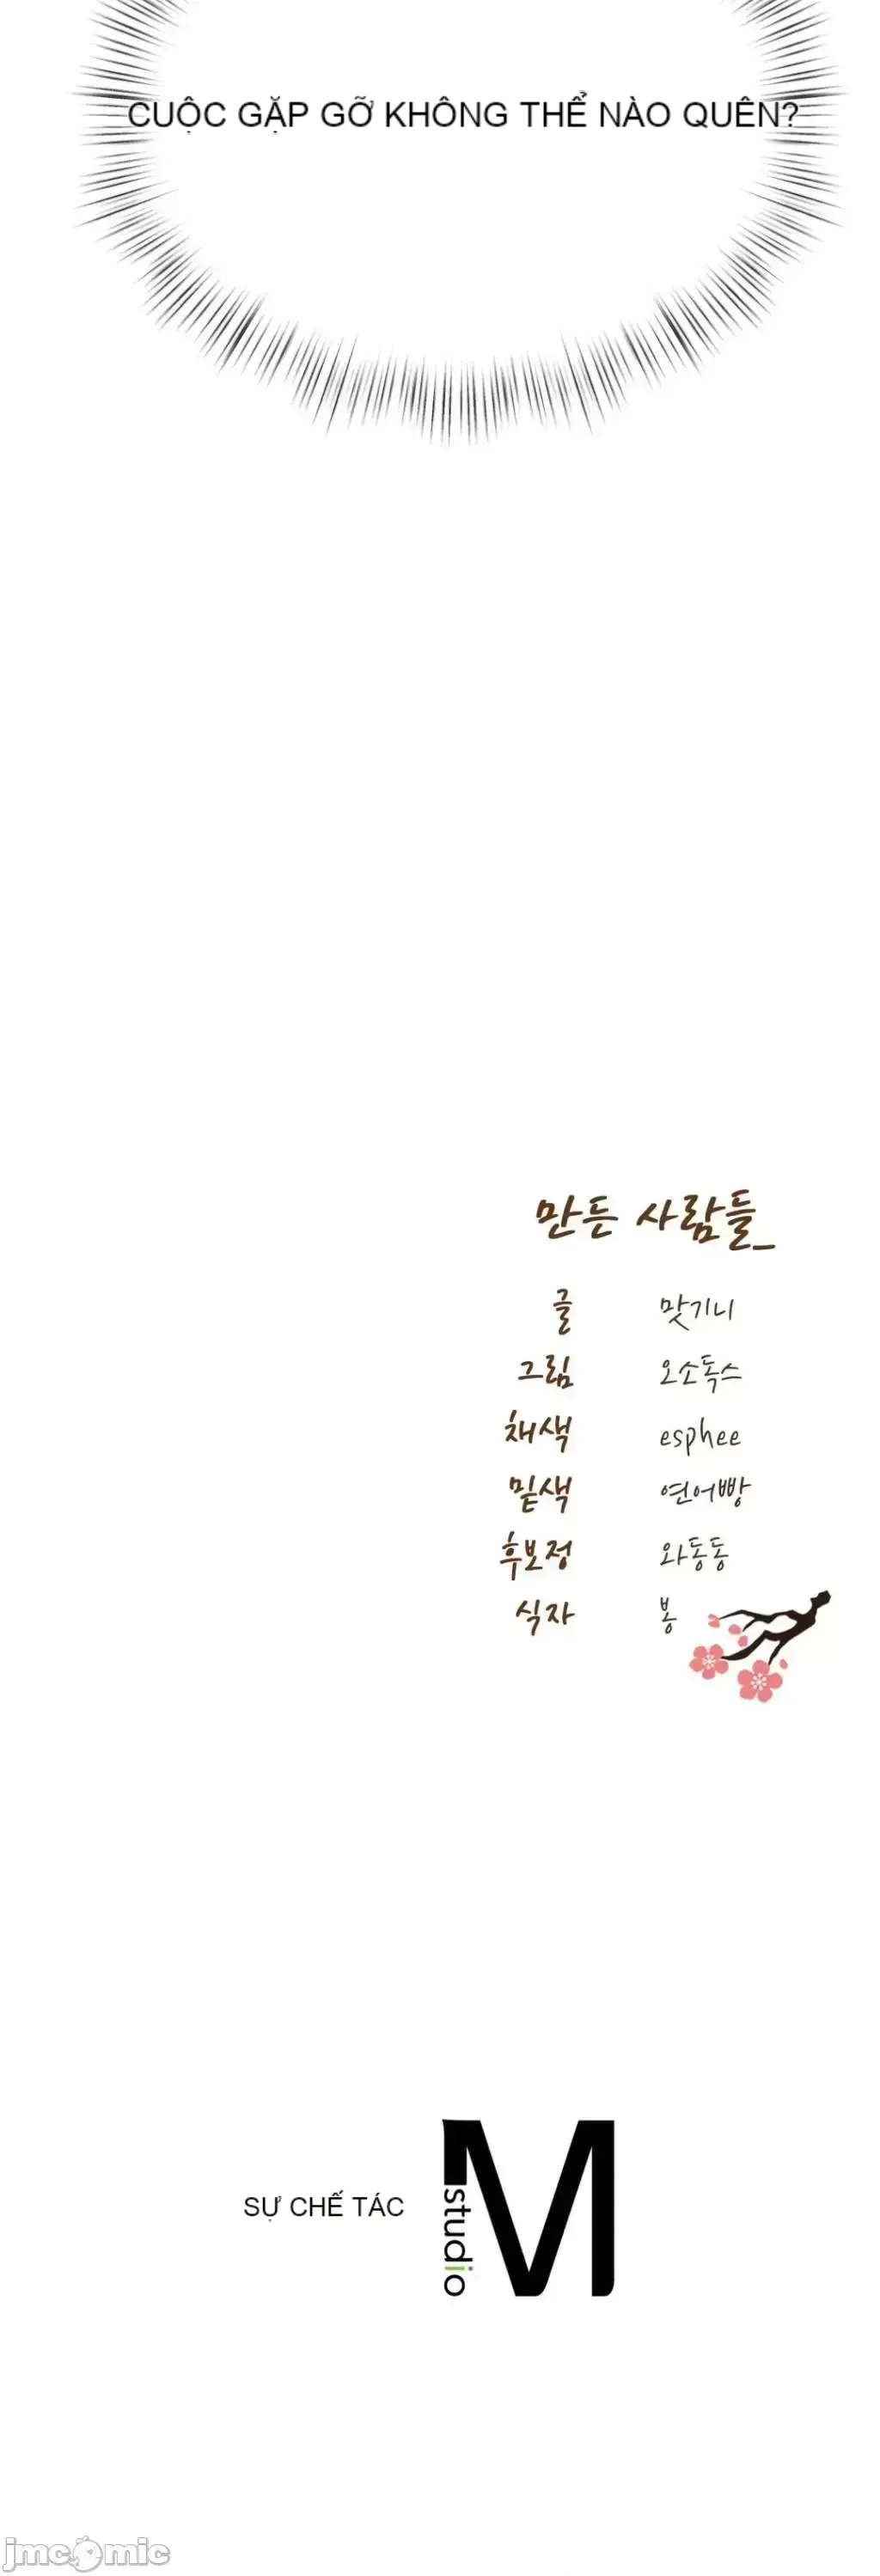 CUỘC GẶP GỠ KHÔNG THỂ NÀO QUÊN?
만든 사람들_
글 맛기니
그림 오소독스
채색 esphee
밑색 연어빵
후보정 와동동
식자 봉
SỰ CHẾ TÁC
M studio
jmcomic